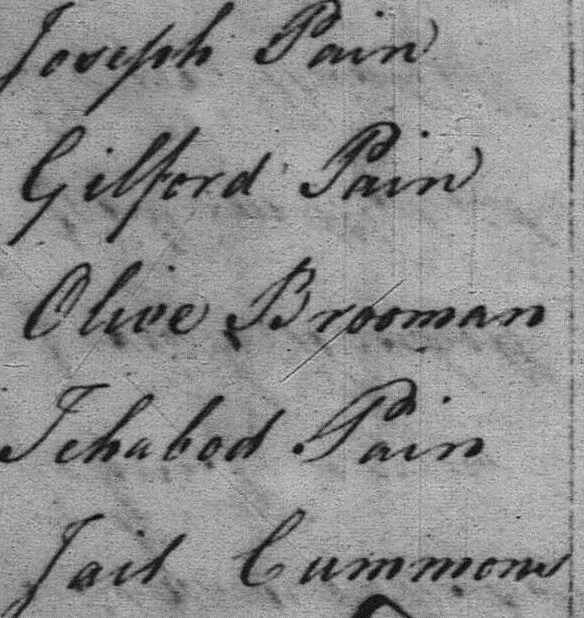 Joseph Pain
Gilford Pain
Olive Brooman
Ichabod Pain
Jail Cummons